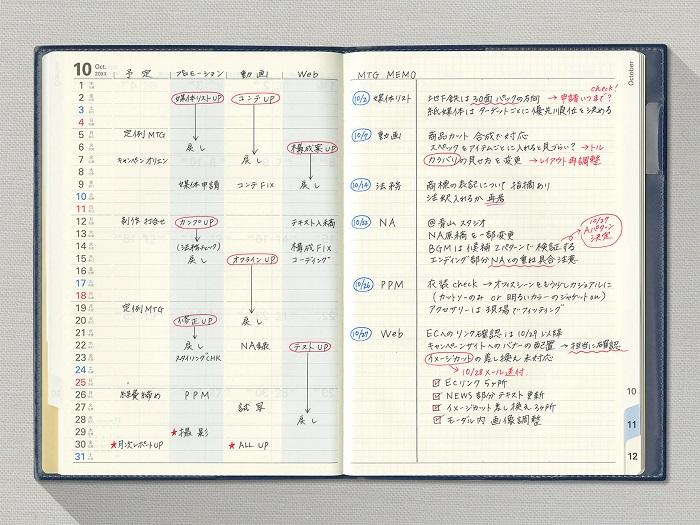 10 Oct. 20XX
予定 プロモーション 動画 Web
1
2 媒体リストUP コンテUP
3
4
5 定例MTG
6 戻し 構成案UP
7 キャンペンオリエン 戻し
8
9 媒体申請 コンテFIX 戻し
10
11
12 制作打合せ カンプUP テキスト入稿
13
14 (法務チェック) 構成FIX
15 戻し オフラインUP コーディング
16
17
18
19 定例MTG
20 修正UP 戻し
21
22 戻し NA録 テストUP
23 スタイリングCHK
24
25
26 経費締め PPM
27 試写
28 戻し
29 ★撮影
30 ★月次レポートUP ★ALL UP
31
MTG MEMO
October
check!
10/2 媒体リスト 地下鉄は30面パックの方向 →申請いつまで?
紙媒体はターゲットごとに優先順位を決める
10/7 動画 商品カット 合成で対応
スペックをアイテムごとに入れると見づらい? →トル
カラバリの見せ方を変更 →レイアウト再調整
10/14 法務 商標の表記について指摘あり
法釈入れるか再考
10/22 NA @青山スタジオ
NA原稿を一部変更
BGMは候補2パターンで検証する
エンディング部分NAとの重ね具合注意
10/29 Aパターン 決定
10/26 PPM 衣装check →オフィスシーンをもう少しカジュアルに
(カットソーのみ or 明るいカラーのジャケットon)
アクセサリーは現場でフィッティング
10/27 Web ECへのリンク確認は10/29以降
キャンペーンサイトへのバナーの配置 →担当に確認
イメージカットの差し換え未対応
→10/28メール送付
ECリンク5ヶ所
NEWS部分テキスト更新
イメージカット差し換え3ヶ所
モーダル内画像調整
10
11
12